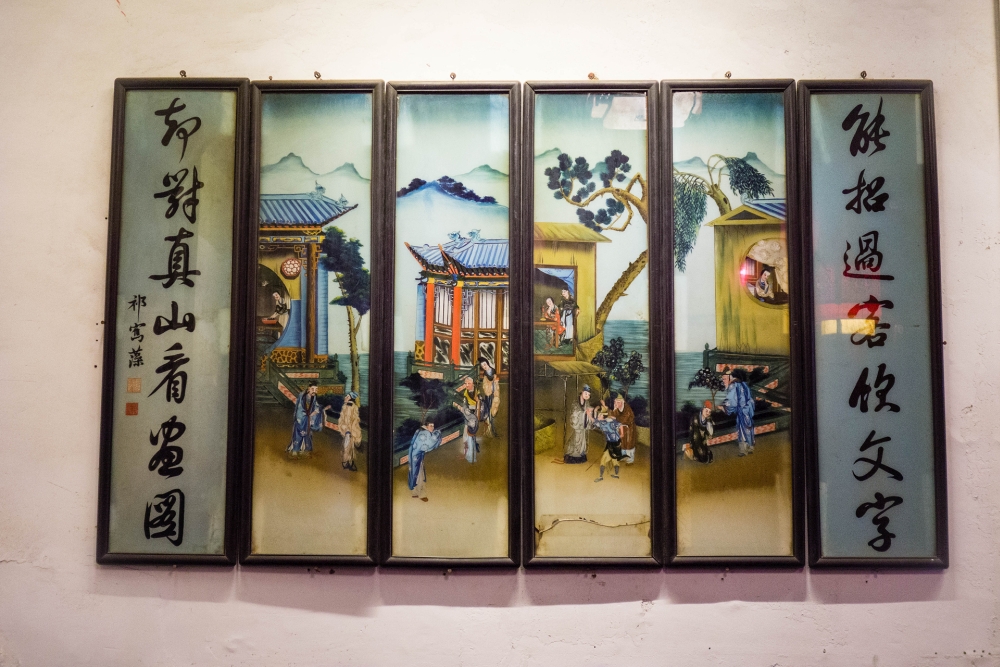 能招過客飲文字
却對真山看畫圖
祁寯藻